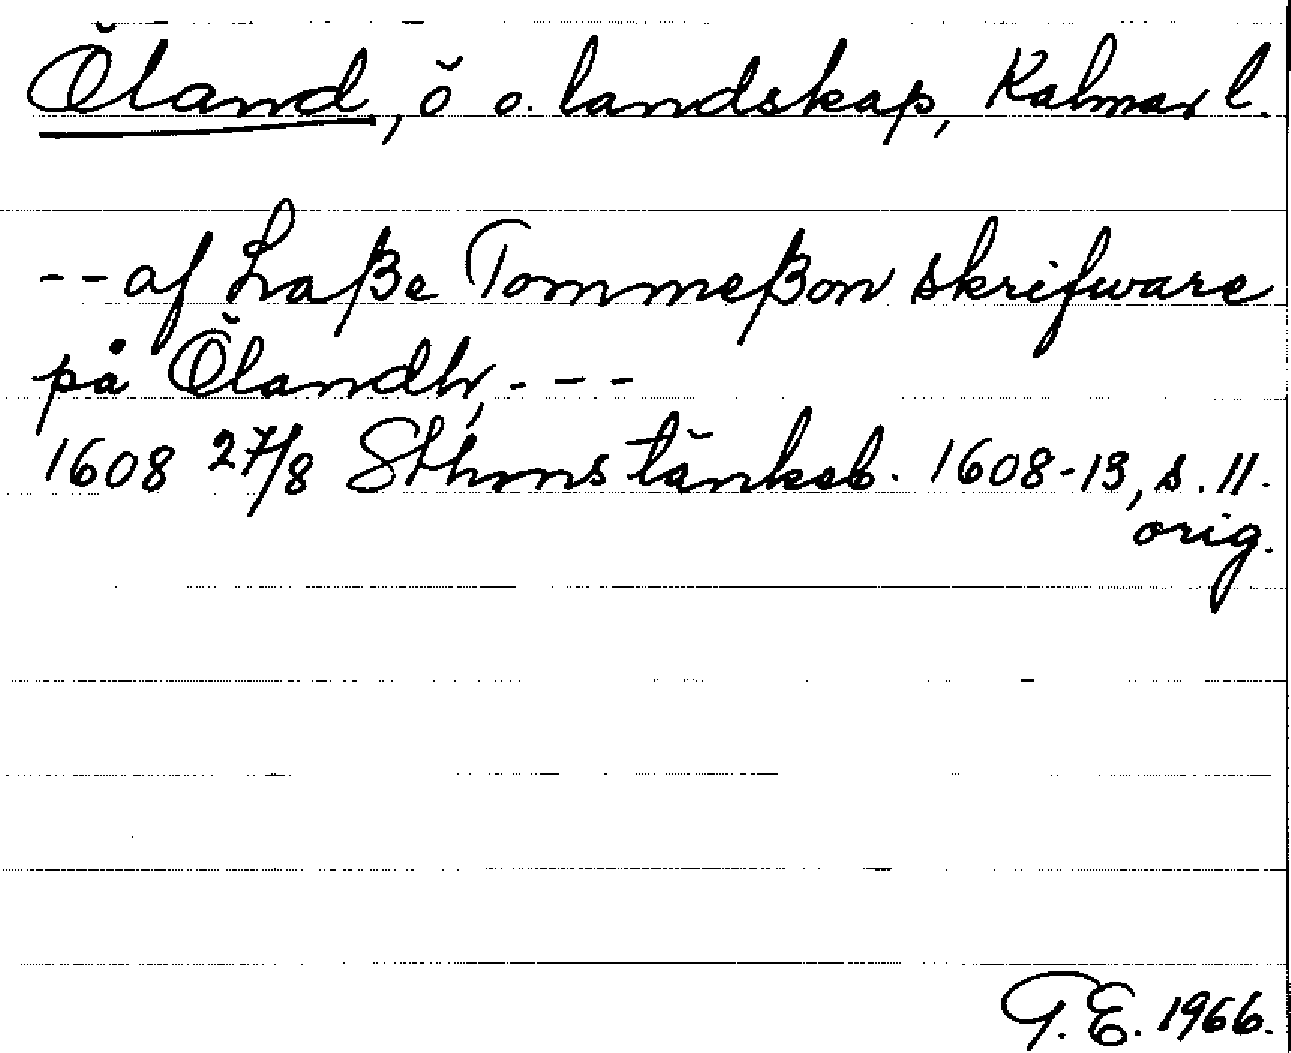 Öland, ö o. landskap, Kalmar l.
-- af Laße Tommeßon skrifware
på Ölandh, - - -
1608 27/8 Sthms tänkeb. 1608-13, s. 11.
orig.
T.E. 1966.